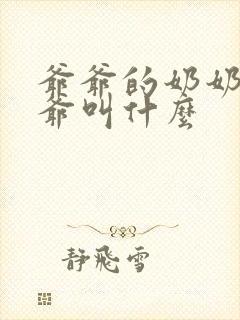 爺爺的奶奶
爺叫什麼
静飛雪